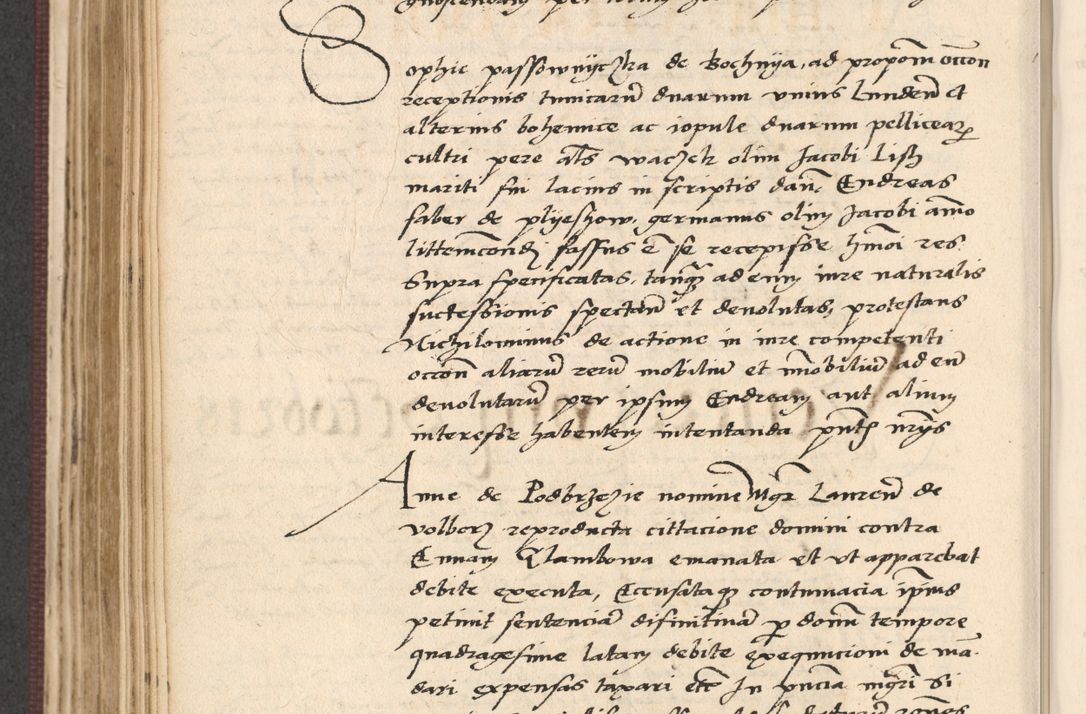 Sophie passownyczka de Bochnya, ad proponm occon
receptionis tunicarum duarum unius Lunden et
alterius bohemice ac iopule duarum pellicearum
cultri pere als waczek olim Jacobi Lish
mariti sui lacius in scriptis dan Endreas
faber de plyeszow, germanus olim Jacobi anno
fassus e se recepisse hmoi res
Supra specificatas, tanquam ad eum iure naturalis
successionis spectan et devolutas, protestans
Nichilominus de actione in iure competenti
occon aliarum rerum mobilium et imobilium ad eum
devolutarum per ipsum Endream aut alium
interesse habentem intentanda pntibus
Anne de Podbrzezie nomine Mgr Lauren de
volborz reproducta cittacione domini contra
Ennam Glambowa emanata et ut apparebat
debite executa, Eccusitaque contumacia ipius
petiuit sentenciam difinitiuam per domin tempore
quadragesime latam debite exequucioni deman-
dari expensas taxari etc In pncia mgri Si